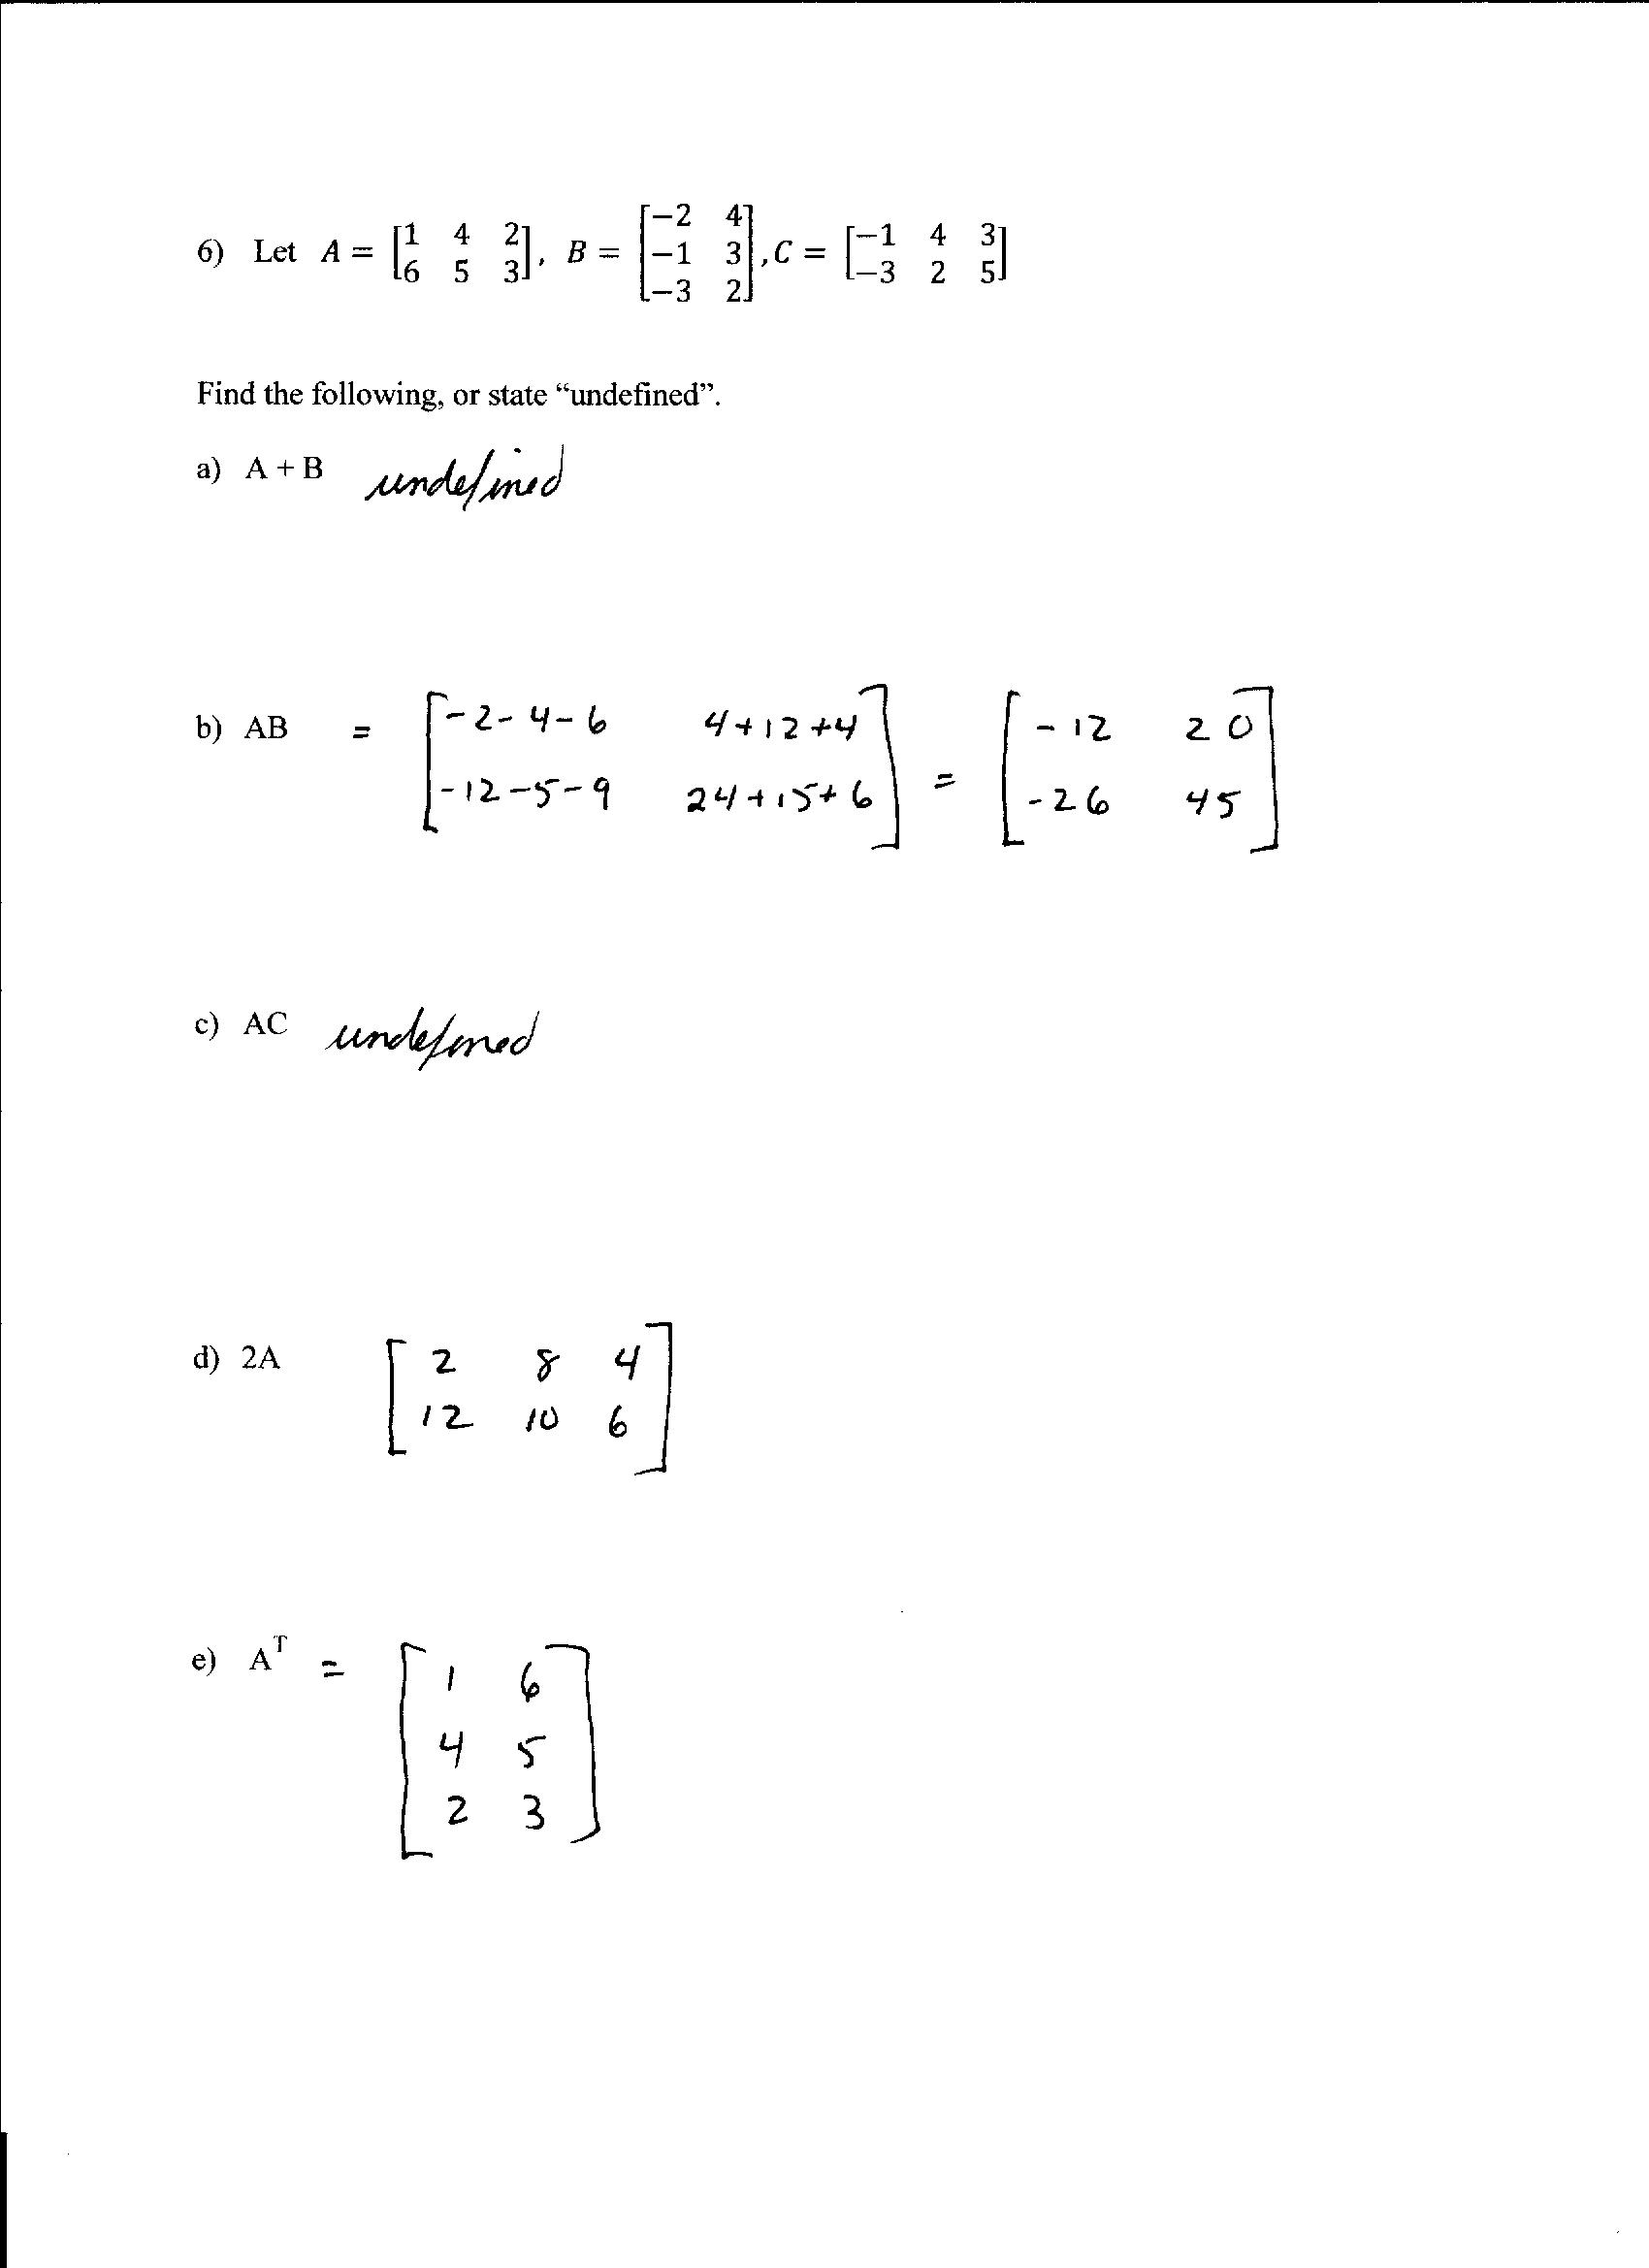 6) Let A = [1 4 2; 6 5 3], B = [−2 4; −1 3; −3 2], C = [−1 4 3; −3 2 5]
Find the following, or state “undefined”.
a) A + B undefined
b) AB = [-2-4-6 4+12+4; -12-5-9 24+15+6] = [-12 20; -26 45]
c) AC undefined
d) 2A [2 8 4; 12 10 6]
e) Aᵀ = [1 6; 4 5; 2 3]